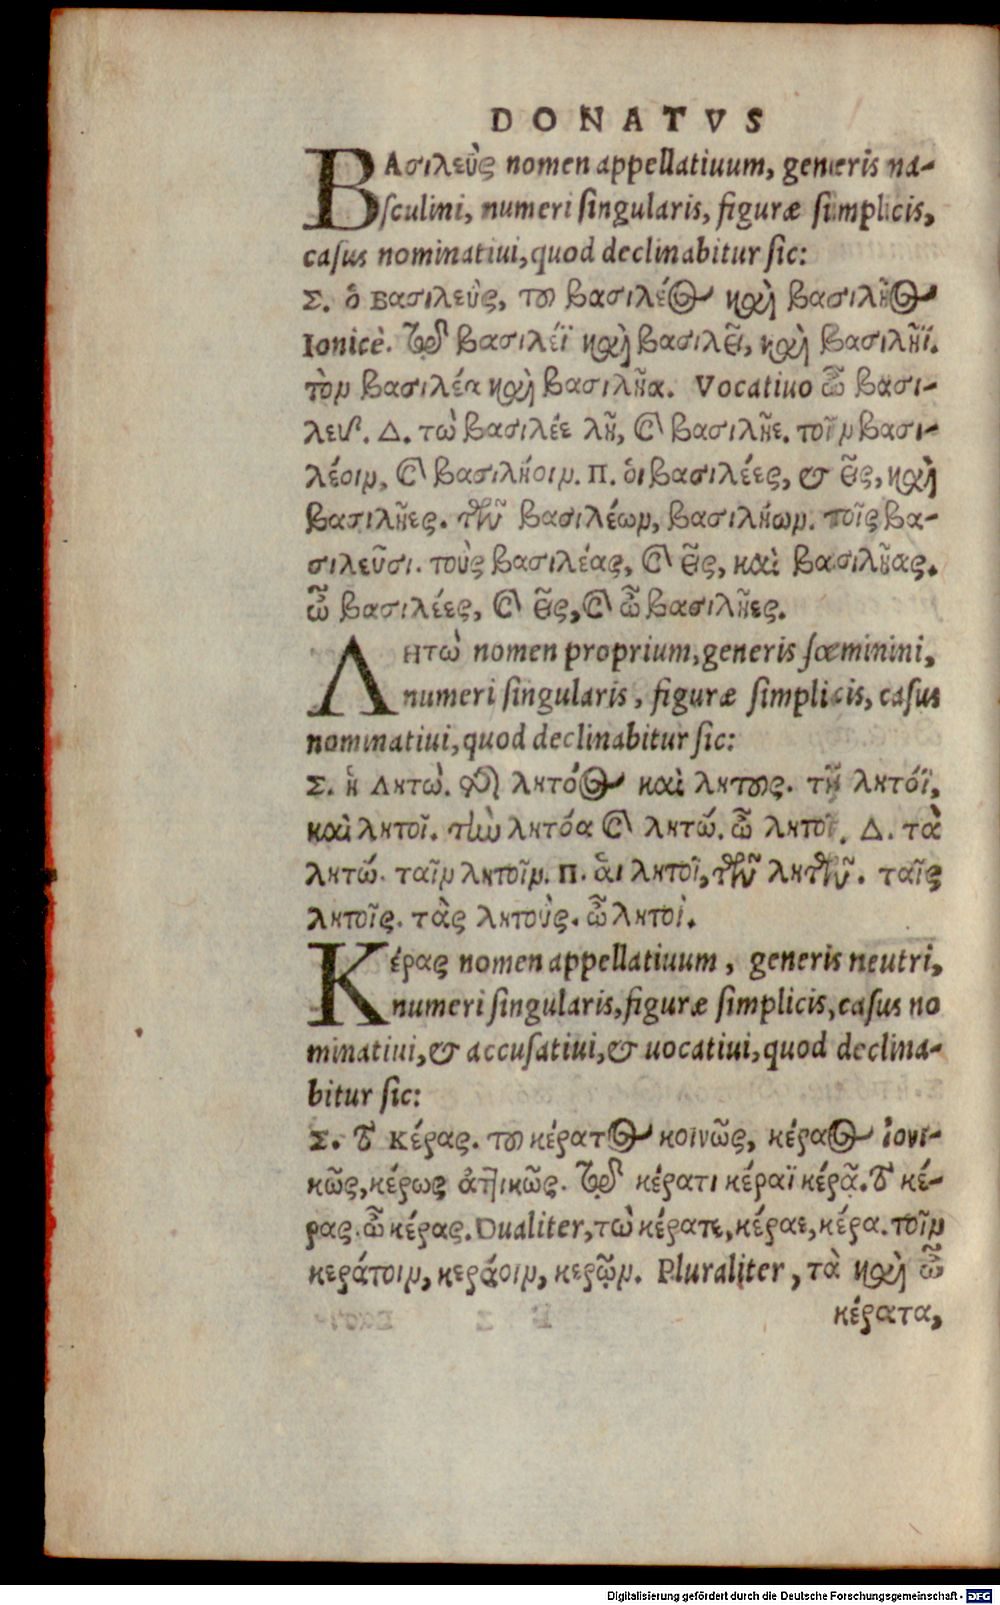 DONATVS
ΒΑσιλεὺς nomen appellatiuum, generis ma-
sculini, numeri singularis, figuræ simplicis,
casus nominatiui, quod declinabitur sic:
Σ. ὁ Βασιλεὺς, τοῦ βασιλέος καὶ βασιλῆος
Ionicè. τῷ βασιλέϊ καὶ βασιλεῖ, καὶ βασιλῆϊ.
τὸν βασιλέα καὶ βασιλῆα. Vocatiuo ὦ βασι-
λεῦ. Δ. τὼ βασιλέε λῆ, καὶ βασιλῆε. τοῖν βασι-
λέοιν, καὶ βασιλήοιν. Π. ὁι βασιλέες, & εῖς, καὶ
βασιλῆες. τῶν βασιλέων, βασιλήων. τοῖς βα-
σιλεῦσι. τοὺς βασιλέας, καὶ εῖς, καὶ βασιλῆας.
ὦ βασιλέες, καὶ εῖς, καὶ ὦ βασιλῆες.
Λητὼ nomen proprium, generis fœminini,
numeri singularis, figuræ simplicis, casus
nominatiui, quod declinabitur sic:
Σ. ἡ Λητὼ. τῆς λητόος καὶ λητοῦς. τῇ λητόϊ,
καὶ λητοῖ. τὴν λητόα καὶ λητώ. ὦ λητοῖ. Δ. τὰ
λητώ. ταῖν λητοῖν. Π. ἁι λητοὶ, τῶν λητῶν. ταῖς
λητοῖς. τὰς λητοὺς. ὦ λητοὶ.
Κέρας nomen appellatiuum, generis neutri,
numeri singularis, figuræ simplicis, casus no
minatiui, & accusatiui, & uocatiui, quod declina-
bitur sic:
Σ. τὸ Κέρας. τοῦ κέρατος κοινῶς, κέραος ἰονι-
κῶς, κέρως ἀττικῶς. τῷ κέρατι κέραϊ κέρᾳ. τὸ κέ-
ρας. ὦ κέρας. Dualiter, τὼ κέρατε, κέραε, κέρα. τοῖν
κεράτοιν, κεράοιν, κερῷν. Pluraliter, τὰ καὶ ὦ
κέρατα,
Digitalisierung gefördert durch die Deutsche Forschungsgemeinschaft - DFG